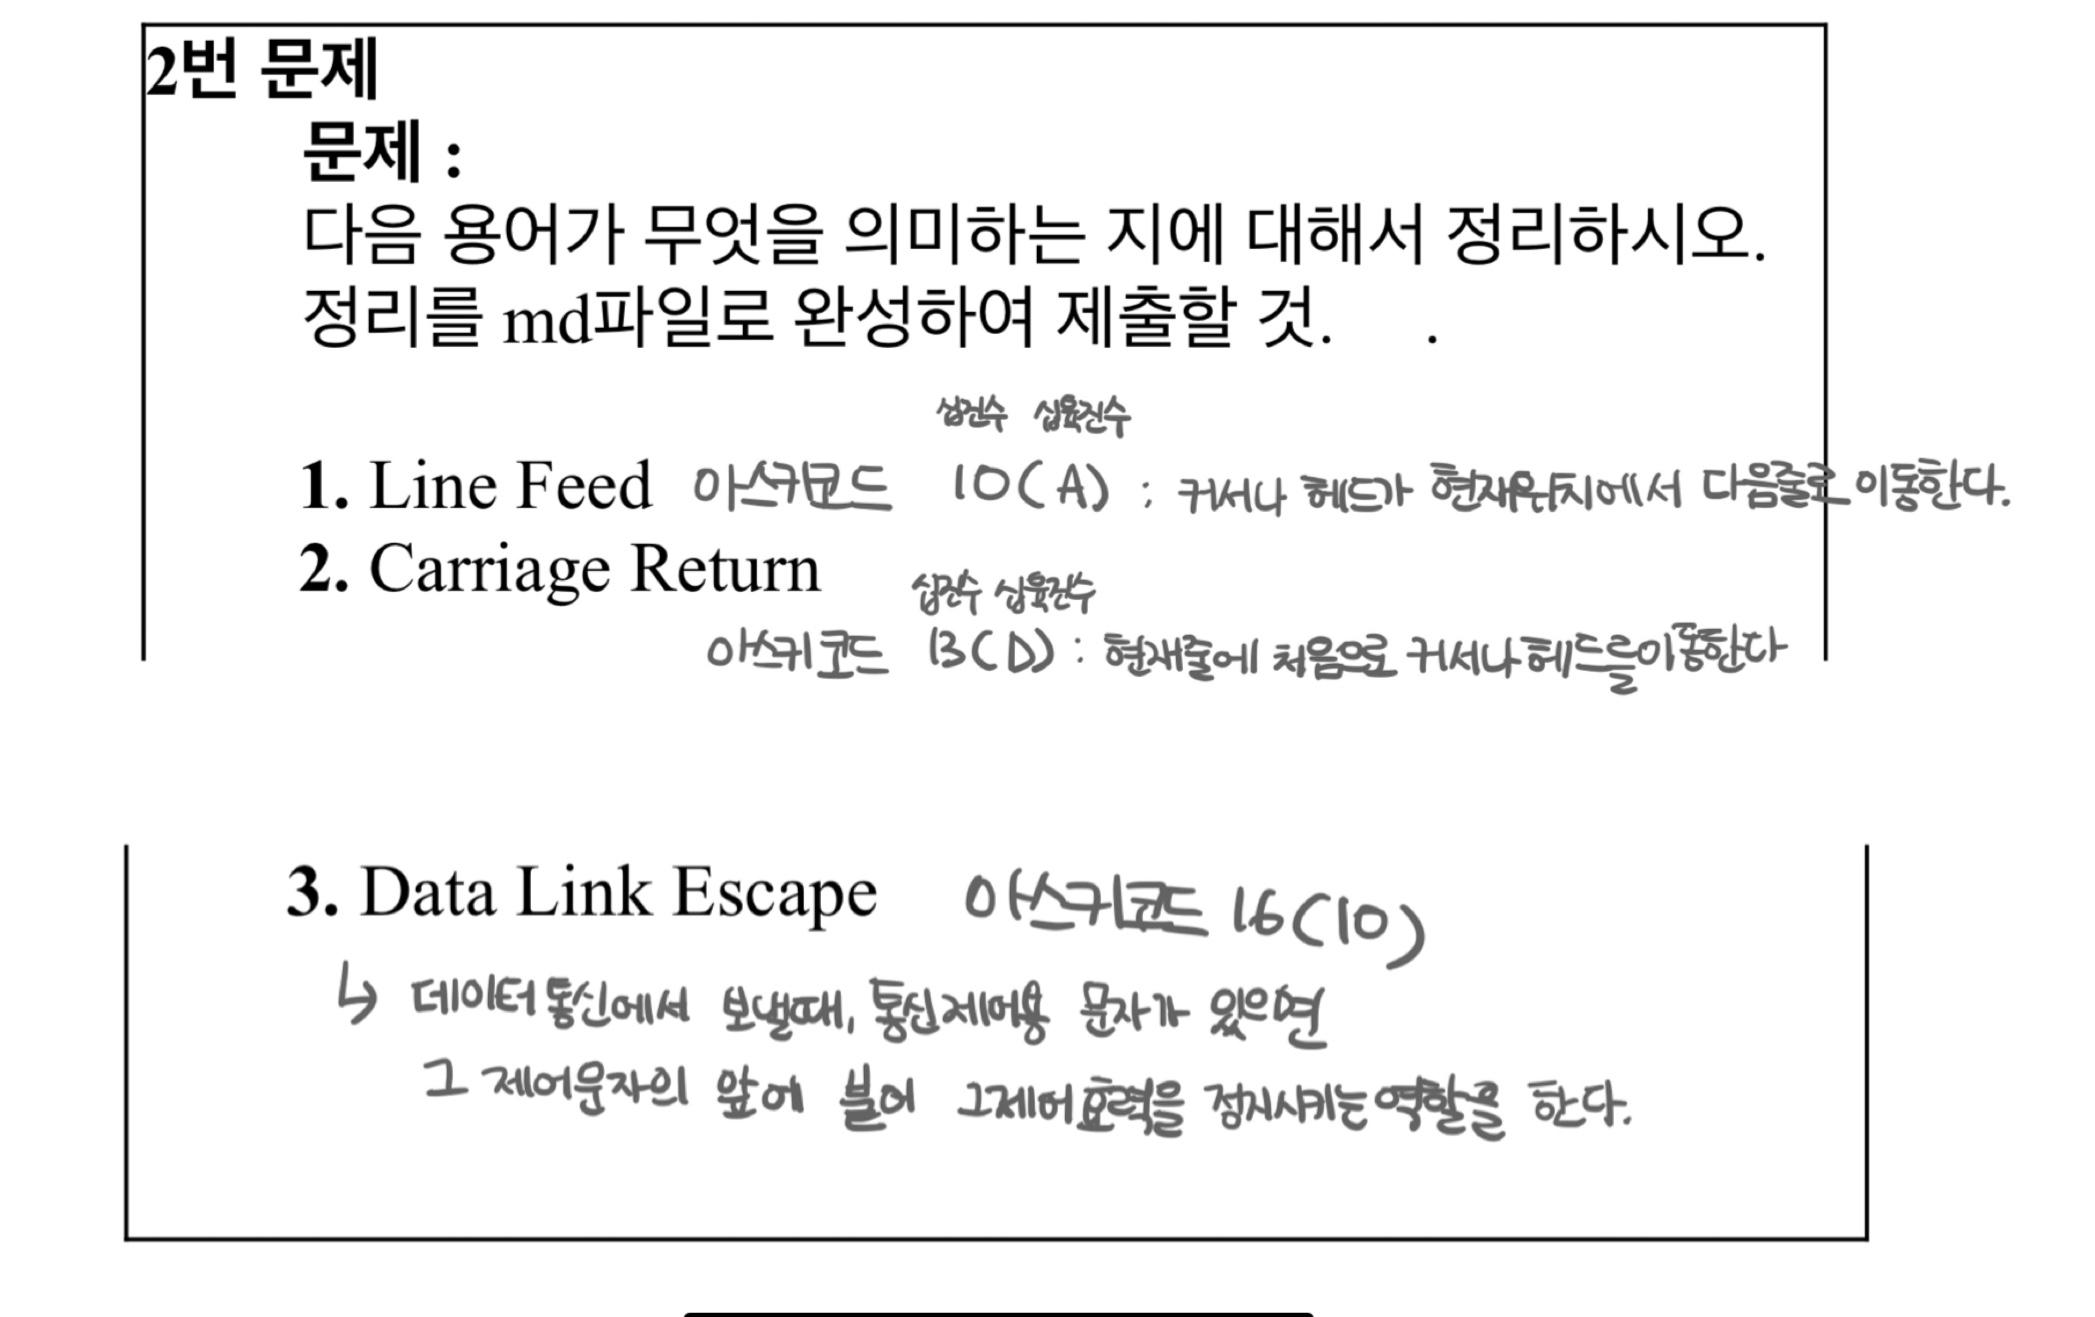 2번 문제
문제 :
다음 용어가 무엇을 의미하는 지에 대해서 정리하시오.
정리를 md파일로 완성하여 제출할 것. .
십진수 십육진수
1. Line Feed 아스키코드 10(A) : 커서나 헤드가 현재위치에서 다음줄로 이동한다.
2. Carriage Return
십진수 십육진수
아스키코드 13(D) : 현재줄에 처음으로 커서나 헤드를 이동한다
3. Data Link Escape 아스키코드 16(10)
↳ 데이터 통신에서 보낼때, 통신제어용 문자가 있으면
그 제어문자의 앞에 붙어 그제어효력을 정지시키는 역할을 한다.